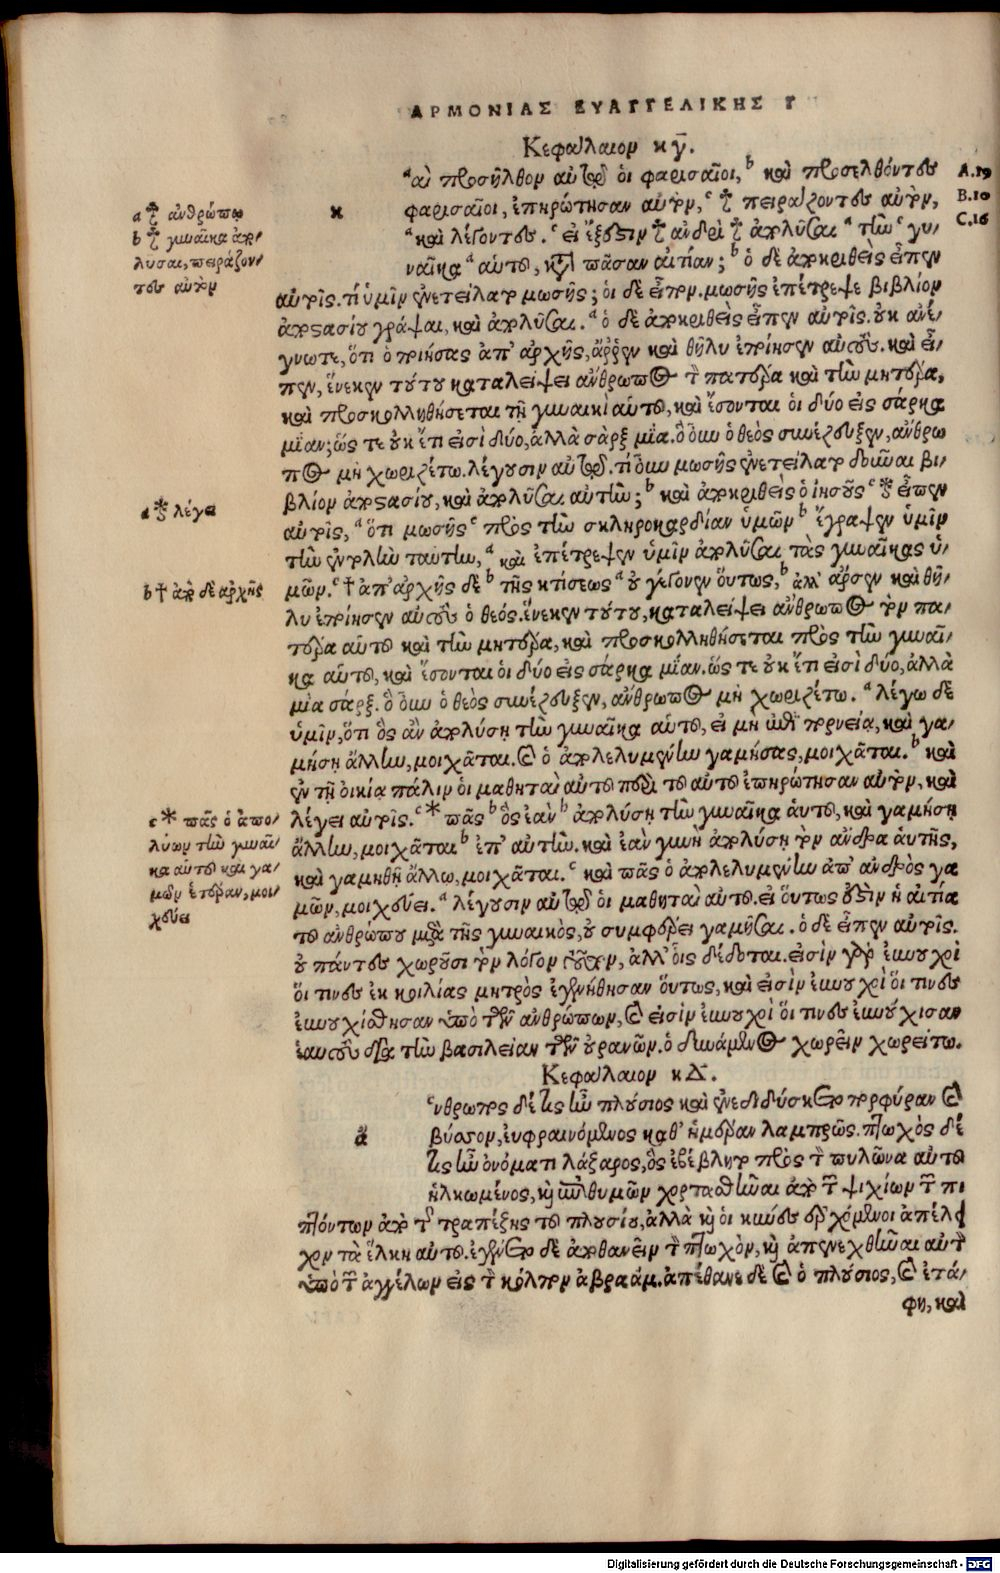 ΑΡΜΟΝΙΑΣ ΕΥΑΓΓΕΛΙΚΗΣ Γ
Κεφάλαιον κγ.
ᵃαὶ προσῆλθον αὐτῷ οἱ φαρισαῖοι, ᵇ καὶ προσελθόντες
φαρισαῖοι, ἐπηρώτησαν αὐτὸν, ᶜ † πειράζοντες αὐτὸν,
ᵃ καὶ λέγοντες. ᶜ εἰ ἔξεστιν † ἀνδρὶ † ἀπολῦσαι ᵃ τὴν ᶜ γυ/
ναῖκα ᵃ αὑτοῦ, κατὰ πᾶσαν αἰτίαν; ᵇ ὁ δὲ ἀποκριθεὶς εἶπεν
αὐτοῖς. τί ὑμῖν ἐνετείλατο μωσῆς; οἱ δὲ εἶπον. μωσῆς ἐπέτρεψε βιβλίον
ἀποστασίου γράψαι, καὶ ἀπολῦσαι. ᵃ ὁ δὲ ἀποκριθεὶς εἶπεν αὐτοῖς. οὐκ ἀνέ/
γνωτε, ὅτι ὁ ποιήσας ἀπ' ἀρχῆς, ἄῤῥεν καὶ θῆλυ ἐποίησεν αὐτοὺς. καὶ εἶ/
πεν, ἕνεκεν τούτου καταλείψει ἄνθρωπος τὸν πατέρα καὶ τὴν μητέρα,
καὶ προσκολληθήσεται τῇ γυναικὶ αὑτοῦ, καὶ ἔσονται οἱ δύο εἰς σάρκα
μίαν; ὥς τε οὐκ ἔτι εἰσὶ δύο, ἀλλὰ σὰρξ μία. ὃ οὖν ὁ θεὸς συνέζευξεν, ἄνθρω
πος μὴ χωριζέτω. λέγουσιν αὐτῷ. τί οὖν μωσῆς ἐνετείλατο δοῦναι βι/
βλίον ἀποστασίου, καὶ ἀπολῦσαι αὐτὴν; ᵇ καὶ ἀποκριθεὶς ὁ ἰησοῦς ᶜ * εἶπεν
αὐτοῖς, ᵃ ὅτι μωσῆς ᶜ πρὸς τὴν σκληροκαρδίαν ὑμῶν ᵇ ἔγραψεν ὑμῖν
τὴν ἐντολὴν ταύτην, ᵃ καὶ ἐπέτρεψεν ὑμῖν ἀπολῦσαι τὰς γυναῖκας ὑ/
μῶν. ᶜ † ἀπ' ἀρχῆς δὲ ᵇ τῆς κτίσεως ᵃ οὐ γέγονεν οὕτως, ᵇ ἀλλ' ἄρσεν καὶ θῆ/
λυ ἐποίησεν αὐτοὺς ὁ θεός. ἕνεκεν τούτου, καταλείψει ἄνθρωπος τὸν πα/
τέρα αὑτοῦ καὶ τὴν μητέρα, καὶ προσκολληθήσεται πρὸς τὴν γυναῖ/
κα αὑτοῦ, καὶ ἔσονται οἱ δύο εἰς σάρκα μίαν. ὥς τε οὐκ ἔτι εἰσὶ δύο, ἀλλὰ
μία σάρξ. ὃ οὖν ὁ θεὸς συνέζευξεν, ἄνθρωπος μὴ χωριζέτω. ᵃ λέγω δὲ
ὑμῖν, ὅτι ὃς ἂν ἀπολύσῃ τὴν γυναῖκα αὑτοῦ, εἰ μὴ ἐπὶ πορνείᾳ, καὶ γα/
μήσῃ ἄλλην, μοιχᾶται. καὶ ὁ ἀπολελυμένην γαμήσας, μοιχᾶται. ᵇ καὶ
ἐν τῇ οἰκίᾳ πάλιν οἱ μαθηταὶ αὐτοῦ περὶ τοῦ αὐτοῦ ἐπηρώτησαν αὐτὸν, καὶ
λέγει αὐτοῖς. ᶜ * πᾶς ᵇ ὃς ἐὰν ᵇ ἀπολύσῃ τὴν γυναῖκα ἁυτοῦ, καὶ γαμήσῃ
ἄλλην, μοιχᾶται ᵇ ἐπ' αὐτὴν. καὶ ἐὰν γυνὴ ἀπολύσῃ τὸν ἄνδρα ἁυτῆς,
καὶ γαμηθῇ ἄλλῳ, μοιχᾶται. ᶜ καὶ πᾶς ὁ ἀπολελυμένην ἀπὸ ἀνδρὸς γα
μῶν, μοιχεύει. ᵃ λέγουσιν αὐτῷ οἱ μαθηταὶ αὐτοῦ. εἰ οὕτως ἐστὶν ἡ αἰτία
τοῦ ἀνθρώπου μετὰ τῆς γυναικὸς, οὐ συμφέρει γαμῆσαι. ὁ δὲ εἶπεν αὐτοῖς.
οὐ πάντες χωροῦσι τὸν λόγον τοῦτον, ἀλλ' οἷς δέδοται. εἰσὶν γὰρ εὐνουχοὶ
οἵ τινες ἐκ κοιλίας μητρὸς ἐγεννήθησαν οὕτως, καὶ εἰσὶν εὐνουχοὶ οἵ τινες
εὐνουχίσθησαν ὑπὸ τῶν ἀνθρώπων, καὶ εἰσὶν εὐνουχοὶ οἵ τινες εὐνούχισαν
ἑαυτοὺς διὰ τὴν βασιλείαν τῶν οὐρανῶν. ὁ δυνάμενος χωρεῖν χωρείτω.
Κεφάλαιον κΔ.
ᶜνθρωπος δέ τις ἦν πλούσιος καὶ ἐνεδιδύσκετο πορφύραν καὶ
βύσσον, εὐφραινόμενος καθ' ἡμέραν λαμπρῶς. πτωχὸς δέ
τις ἦν ὀνόματι λάζαρος, ὃς ἐβέβλητο πρὸς τὸν πυλῶνα αὐτοῦ
ἡλκωμένος, καὶ ἐπιθυμῶν χορτασθῆναι ἀπὸ τῶν ψιχίων τῶν πι
πτόντων ἀπὸ τῆς τραπέζης τοῦ πλουσίου, ἀλλὰ καὶ οἱ κύνες ἐρχόμενοι ἀπέλει
χον τὰ ἕλκη αὐτοῦ. ἐγένετο δὲ ἀποθανεῖν τὸν πτωχὸν, καὶ ἀπενεχθῆναι αὐτὸν
ὑπὸ τῶν ἀγγέλων εἰς τὸν κόλπον ἀβραάμ. ἀπέθανε δὲ καὶ ὁ πλούσιος, καὶ ἐτά/
φη, καὶ
κ
ἄ
A.19
B.10
C.16
a † ἀνθρώπῳ
b † γυναῖκα ἀπο/
λυσαι, πειράζον/
τες αὐτὸν
a * λέγει
b † ἀπὸ δὲ ἀρχῆς
c * πᾶς ὁ ἀπο/
λύων τὴν γυναῖ/
κα αὐτοῦ καὶ γα/
μῶν ἑτέραν, μοι/
χεύει
Digitalisierung gefördert durch die Deutsche Forschungsgemeinschaft - DFG